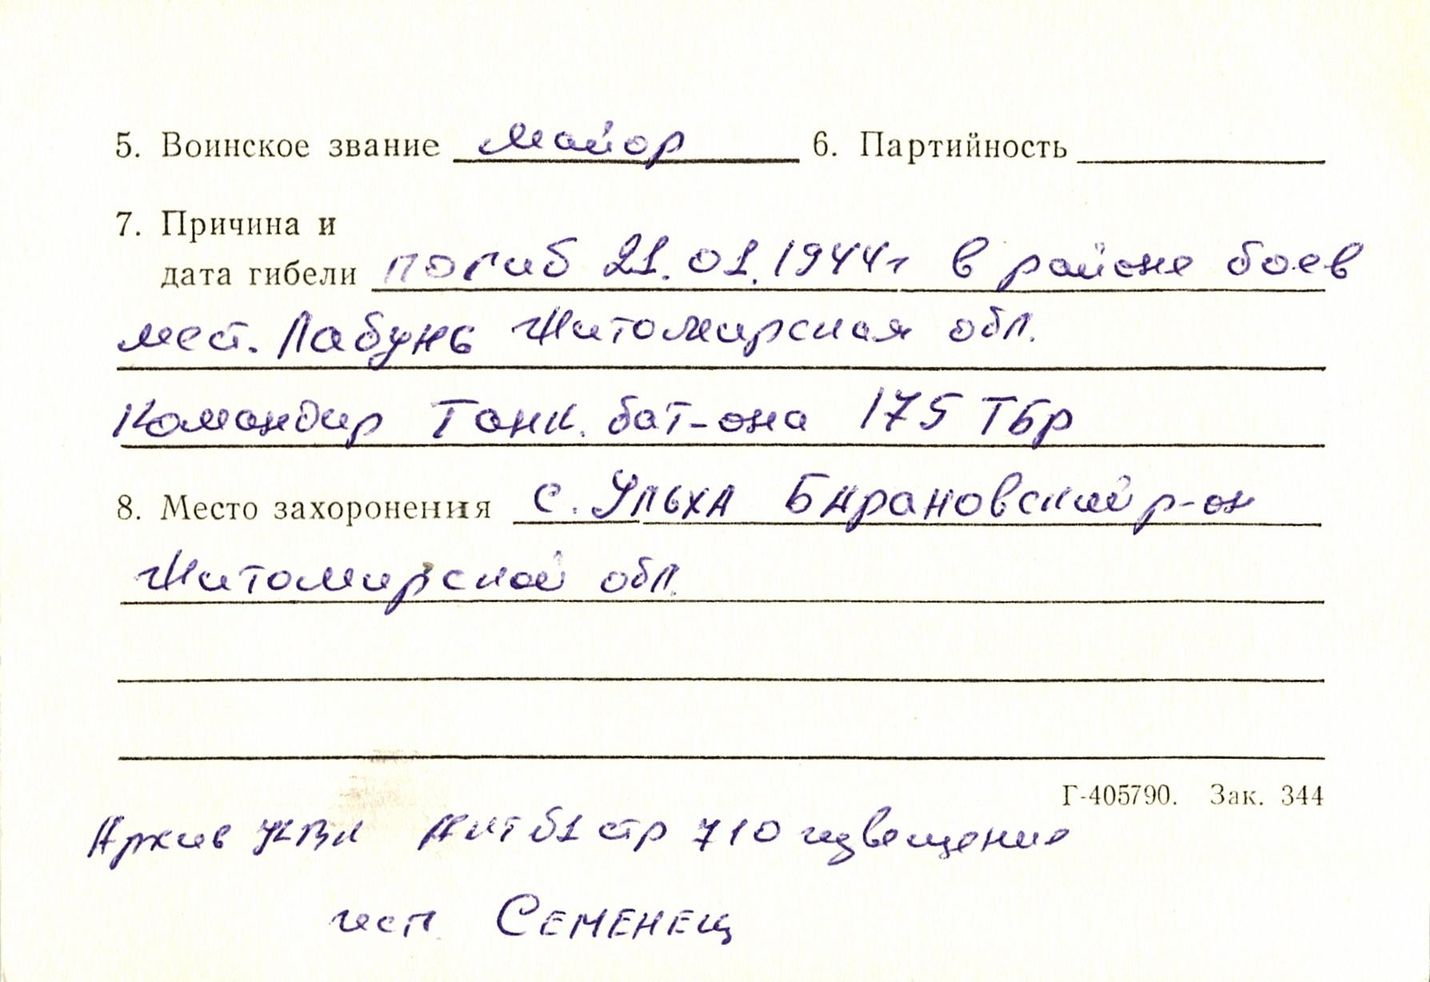 5. Воинское звание майор 6. Партийность
7. Причина и
дата гибели погиб 21.01.1944г в районе боев
мест. Лабунь Житомирская обл.
Командир Танк. бат-она 175 ТБр
8. Место захоронения с. Ульха Барановский р-он
Житомирской обл.
Г-405790. Зак. 344
Архив стр 710 извещение
исп. Семенец